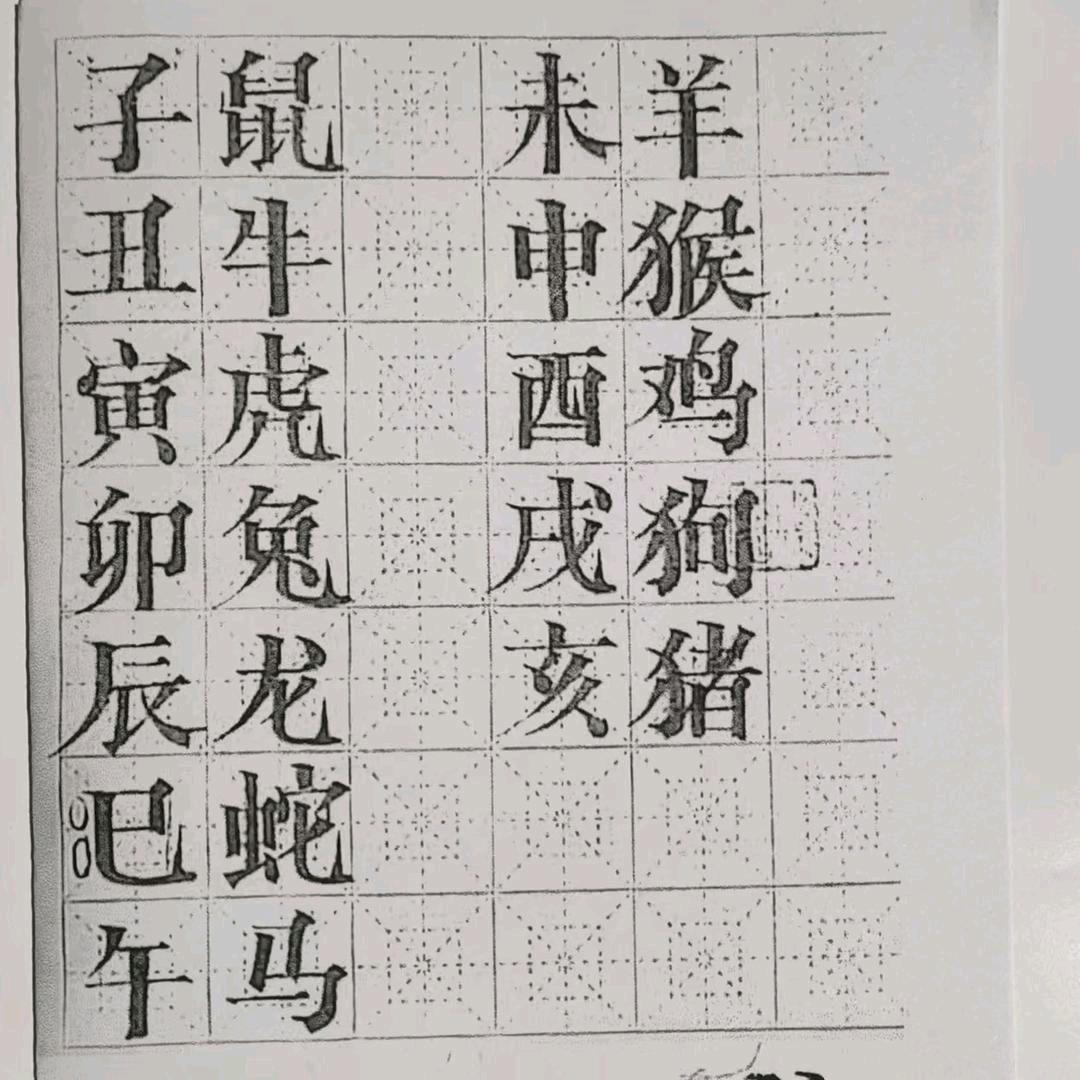 子鼠 未羊
丑牛 申猴
寅虎 酉鸡
卯兔 戌狗
辰龙 亥猪
巳蛇
午马